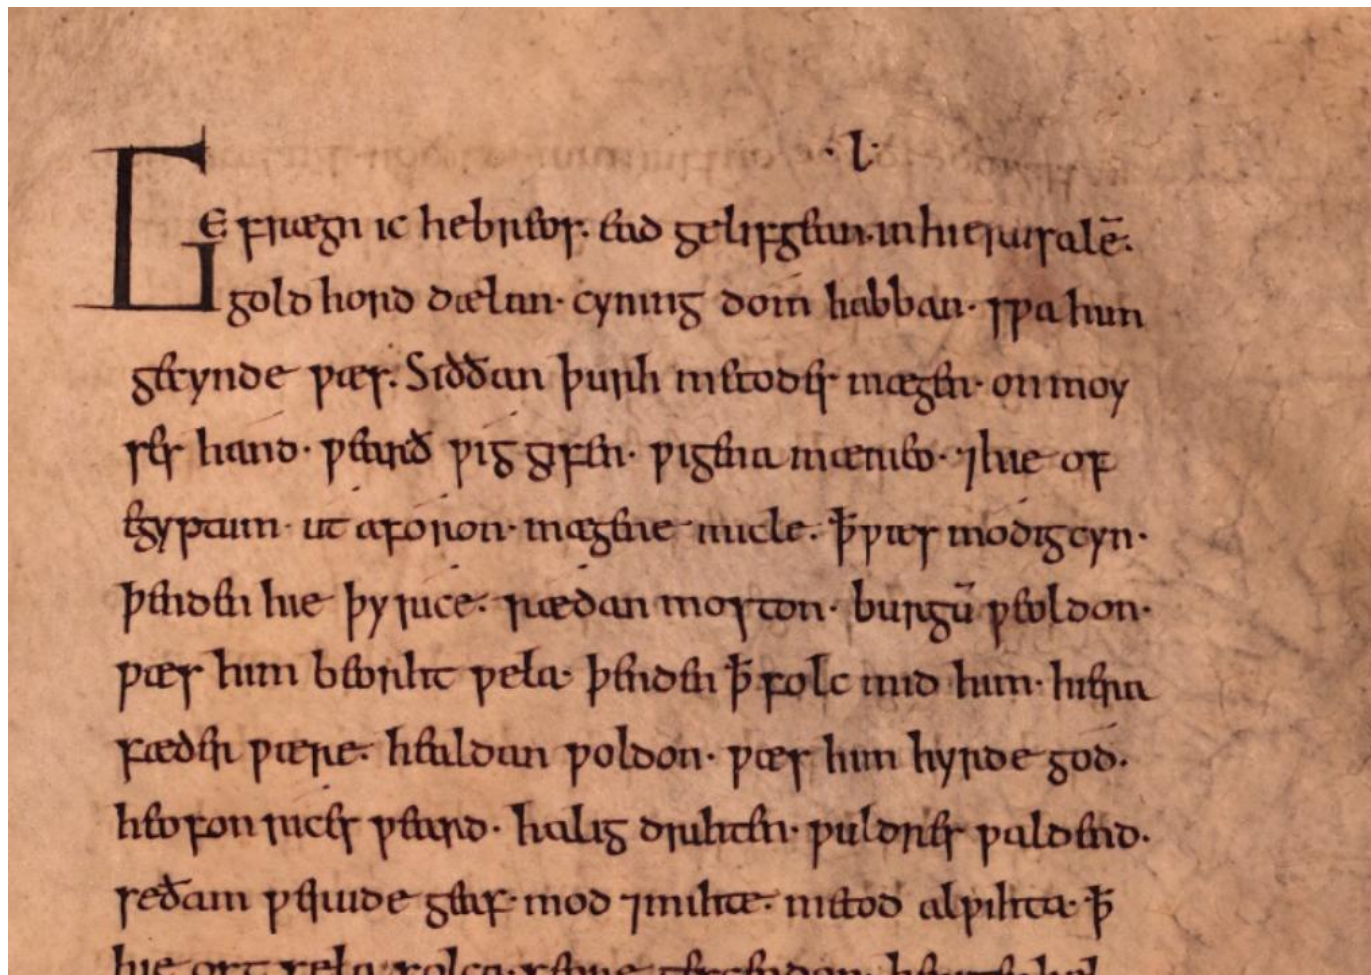 ·l·
GE frægn ic hebreos. ead gelifgean. in hierusalē.
gold hord dælan· cyning dom habban· sƿa him
gecynde ƿæs. Siððan þurh metodes mægen· on moy
ses hand· ƿearð ƿig gifen· ƿigena mænieo· ⁊ hie of
egyptum· ut aforon· mægene micle. ꝥ ƿæs modig cyn·
þenden hie þy rice. rædan moston· burgū ƿeoldon·
ƿæs him beorht ƿela· þenden ꝥ folc mid him· hiera
fæder ƿære. healdan ƿoldon· ƿæs him hyrde god·
heofon rices ƿeard· halig drihten· ƿuldres ƿaldend·
se ðam ƿerude geaf· mod ⁊ mihte· metod alƿihta· ꝥ
hie oft fela folca· feore gesceodon· heriges hel